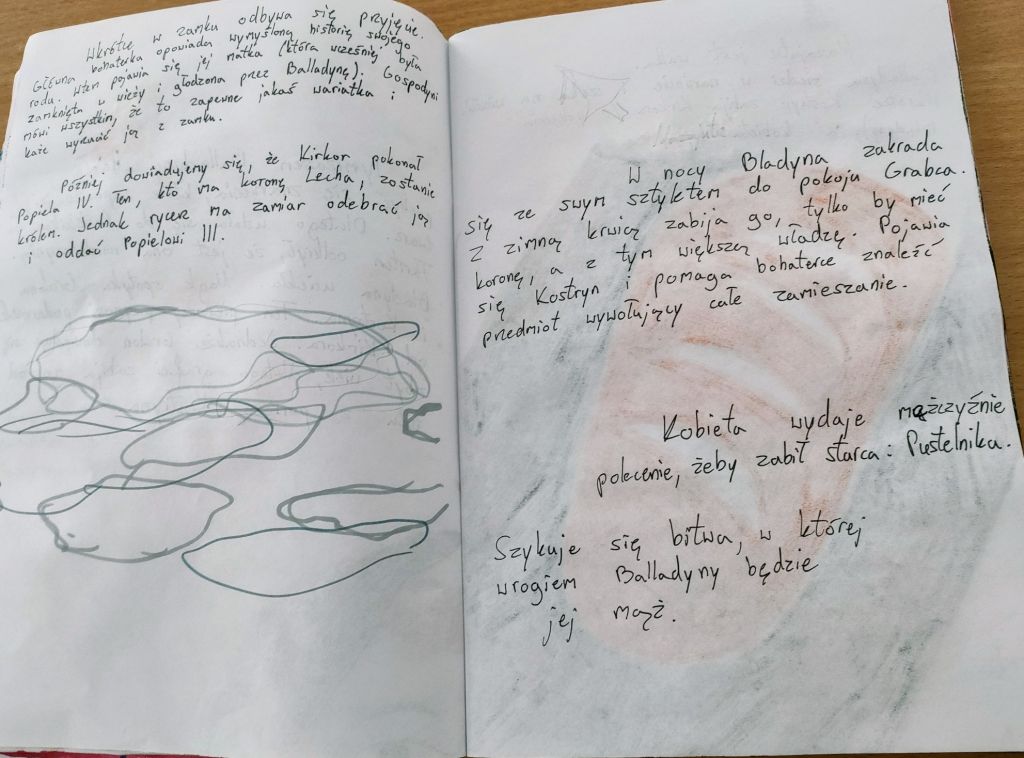 Wkrótce w zamku odbywa się przyjęcie.
Główna bohaterka opowiada wymyśloną historię swojego
rodu. Wtem pojawia się jej matka (która wcześniej była
zamknięta w wieży i głodzona przez Balladynę). Gospodyni
mówi wszystkim, że to zapewne jakaś wariatka i
każe wyrzucić ją z zamku.
Później dowiadujemy się, że Kirkor pokonał
Popiela IV. Ten, kto ma koronę Lecha, zostanie
królem. Jednak rycerz ma zamiar odebrać ją
i oddać Popielowi III.
W nocy Bladyna zakrada
się ze swym sztyletem do pokoju Grabca.
Z zimną krwią zabija go, tylko by mieć
koronę, a z tym większą władzę. Pojawia
się Kostryn i pomaga bohaterce znaleźć
przedmiot wywołujący całe zamieszanie.
Kobieta wydaje mężczyźnie
polecenie, żeby zabił starca: Pustelnika.
Szykuje się bitwa, w której
wrogiem Balladyny będzie
jej mąż.